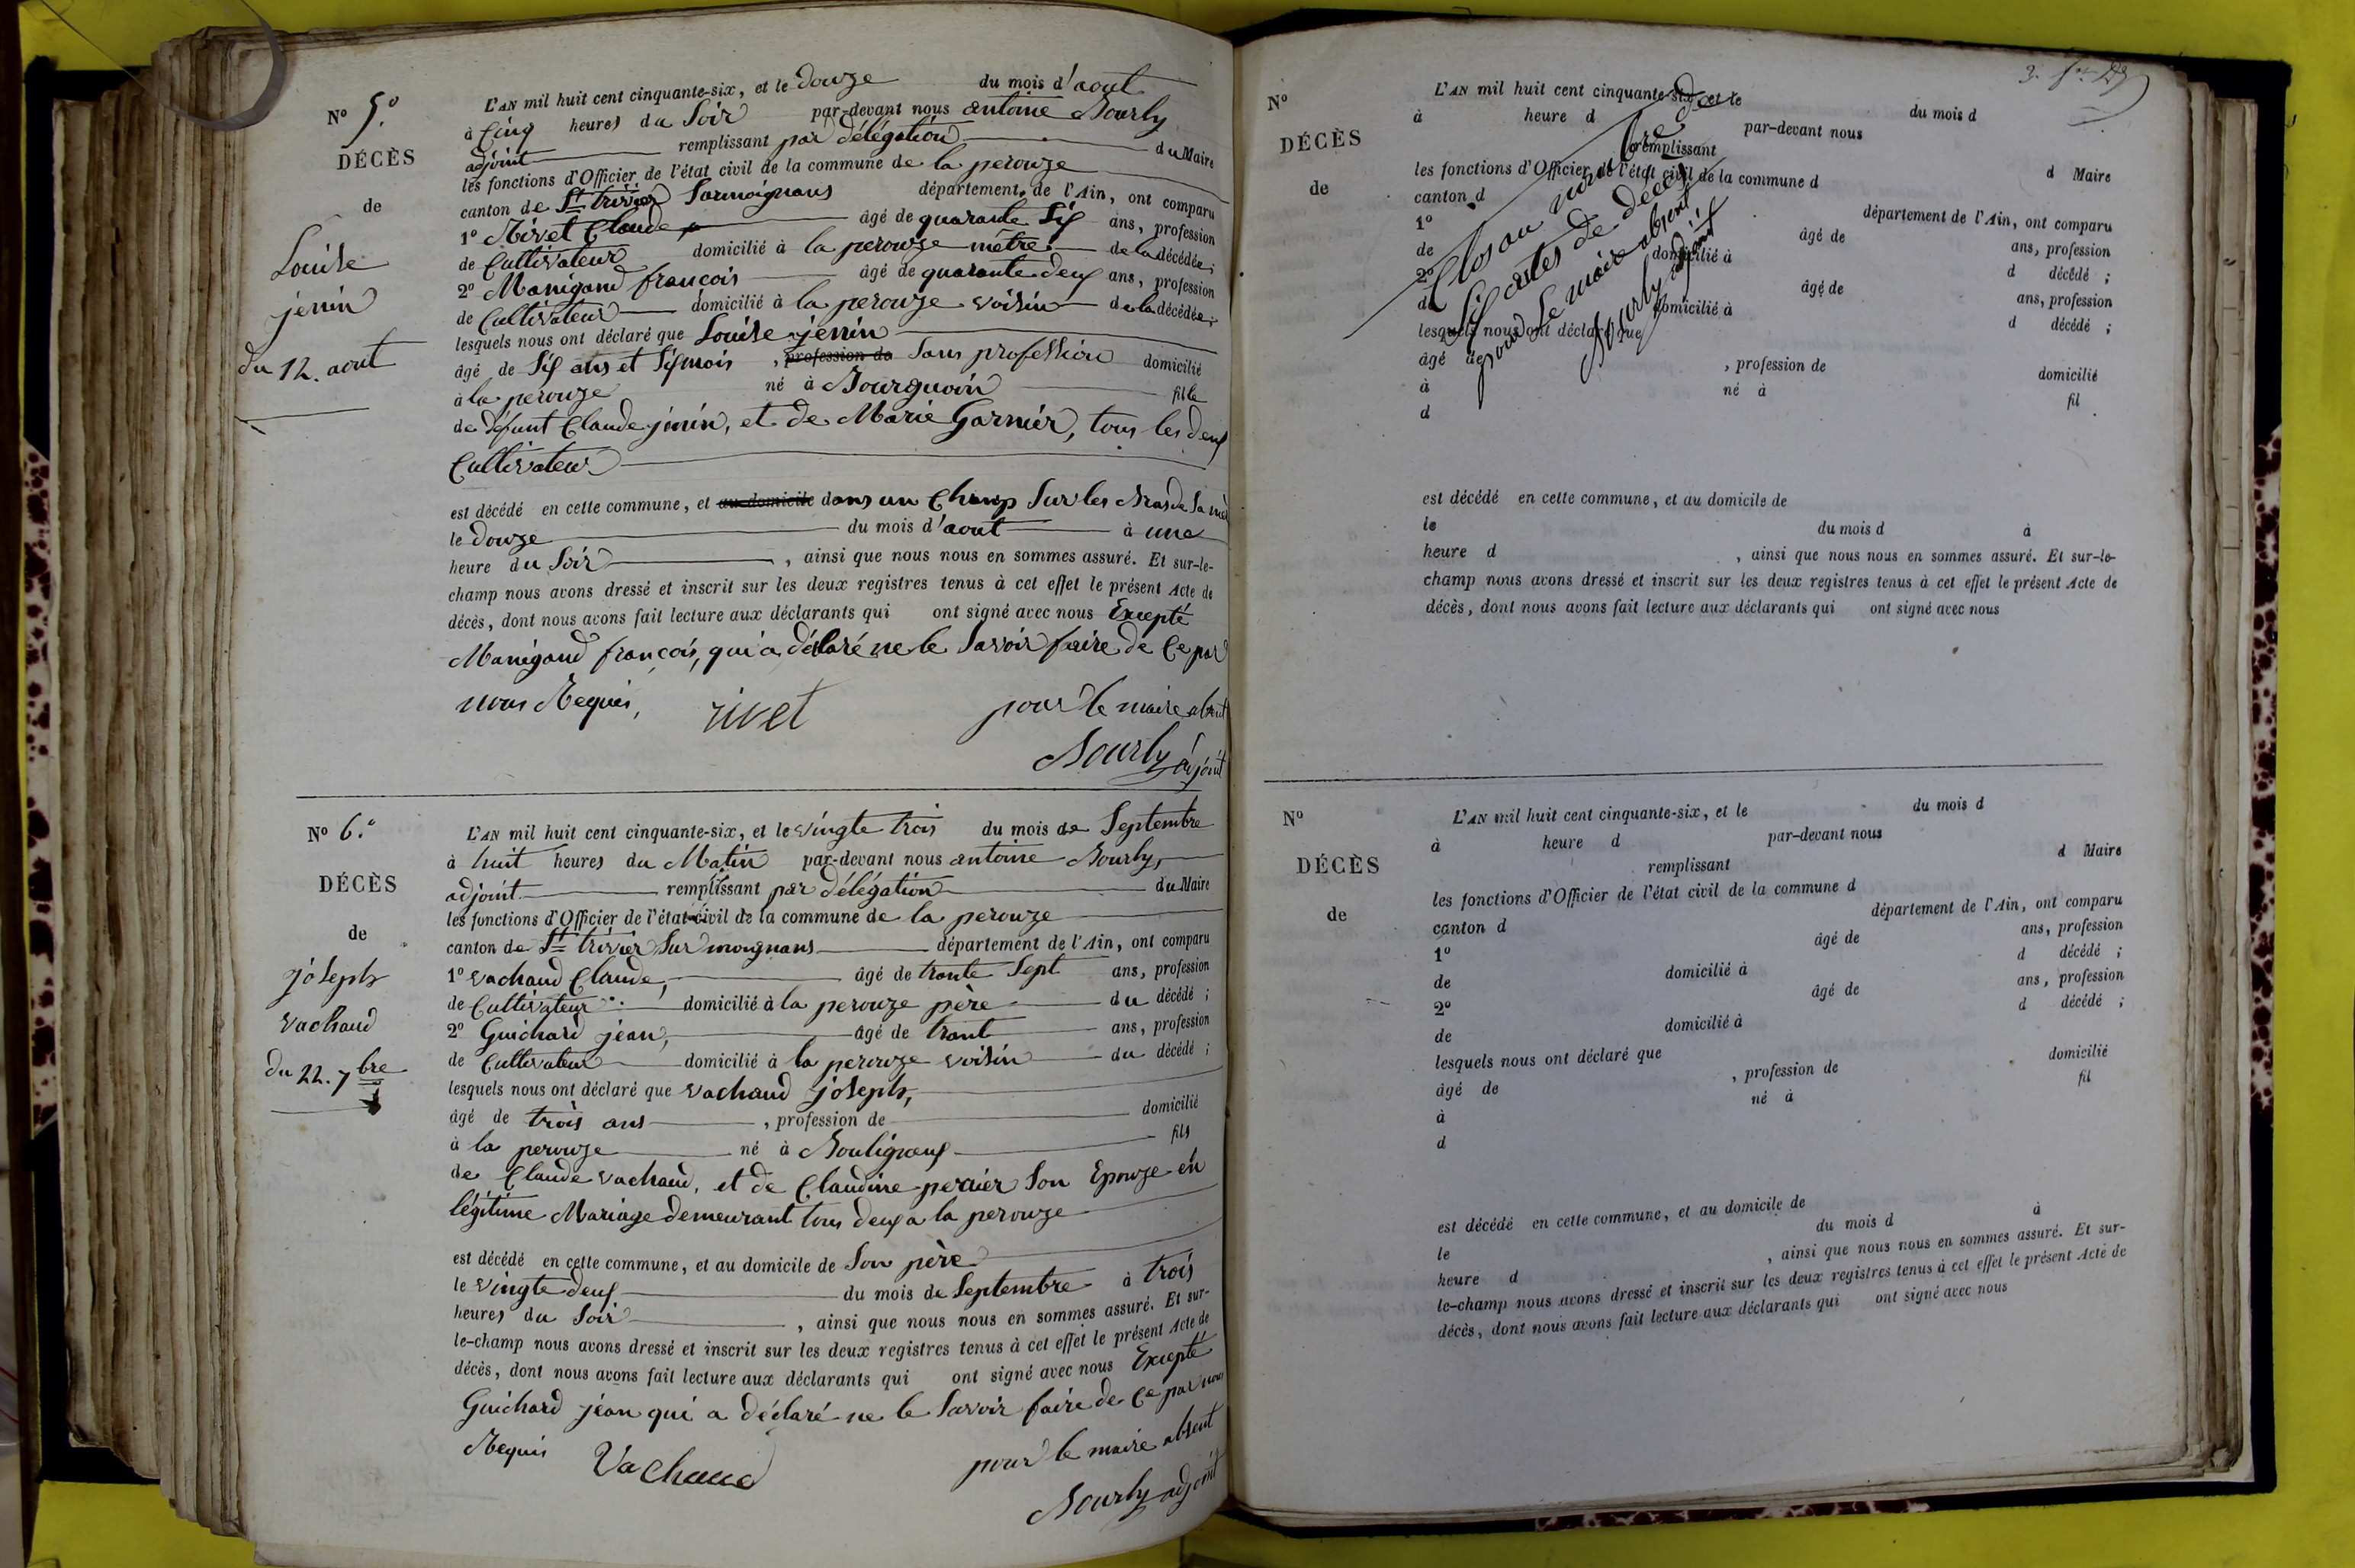 N° 5.°
DÉCÈS
de
Louise
jenin
du 12. aout
L'AN mil huit cent cinquante-six, et le douze du mois d'aout
à Cinq heures du Soir par-devant nous antoine Bourly
adjoint remplissant par délégation du Maire
les fonctions d'Officier de l'état civil de la commune de la perouze
canton de St trivier Surmoignans département de l'Ain, ont comparu
1° Rivet Claude âgé de quarante Six ans, profession
de Cultivateur domicilié à la perouze mètre de la décédée;
2° Manigand françois âgé de quarante deux ans, profession
de Cultivateur domicilié à la perouze voisin de la décédée;
lesquels nous ont déclaré que Louise jenin
âgé de Six ans et Six mois , profession de Sans profession domicilié
à la perouze né à Bourguoin fille
de défunt Claude jenin, et de Marie Garnier, tous les deux
Cultivateur
est décédé en cette commune, et au domicile dans un Champ Sur les Bras de Sa mèr
le douze du mois d'aout à une
heure du Soir , ainsi que nous nous en sommes assuré. Et sur-le-
champ nous avons dressé et inscrit sur les deux registres tenus à cet effet le présent Acte de
décès, dont nous avons fait lecture aux déclarants qui ont signé avec nous Excepté
Manigand françois, qui a déclaré ne le Savoir faire de Ce par
nous Requis, rivet pour le maire absent
Bourly adjoint
N° 6.°
DÉCÈS
de
joseph
vachaud
du 22. 7bre
L'AN mil huit cent cinquante-six, et le vingte trois du mois de Septembre
à huit heures du Matin par-devant nous antoine Bourly,
adjoint remplissant par délégation du Maire
les fonctions d'Officier de l'état civil de la commune de la perouze
canton de St trivier Sur moignans département de l'Ain, ont comparu
1° vachaud Claude, âgé de trante Sept ans, profession
de Cultivateur domicilié à la perouze père du décédé;
2° Guichard jean, âgé de trant ans, profession
de Cultivateur domicilié à la perouze voisin du décédé;
lesquels nous ont déclaré que vachaud joseph,
âgé de trois ans , profession de domicilié
à la perouze né à Bouligneux fils
de Claude vachaud, et de Claudine perrier Son Epouze en
légitime Mariage demeurant tous deux a la perouze
est décédé en cette commune, et au domicile de Son père
le vingte deux du mois de Septembre à trois
heures du Soir , ainsi que nous nous en sommes assuré. Et sur-
le-champ nous avons dressé et inscrit sur les deux registres tenus à cet effet le présent Acte de
décès, dont nous avons fait lecture aux déclarants qui ont signé avec nous Excepté
Guichard jean qui a déclaré ne le Savoir faire de Ce par nous
Requis Vachaud pour le maire absent
Bourly adjoint
N°
DÉCÈS
de
L'AN mil huit cent cinquante-six, et le du mois d
à heure d par-devant nous
remplissant d Maire
les fonctions d'Officier de l'état civil de la commune d
canton d département de l'Ain, ont comparu
1° âgé de ans, profession
de domicilié à d décédé ;
2° âgé de ans, profession
de domicilié à d décédé ;
lesquels nous ont déclaré que
âgé de , profession de domicilié
à né à fil
d
Clos au nombre de
Six actes de décès
pour Le maire absent
Bourly adjoint
est décédé en cette commune, et au domicile de
le du mois d à
heure d , ainsi que nous nous en sommes assuré. Et sur-le-
champ nous avons dressé et inscrit sur les deux registres tenus à cet effet le présent Acte de
décès, dont nous avons fait lecture aux déclarants qui ont signé avec nous
N°
DÉCÈS
de
L'AN mil huit cent cinquante-six, et le du mois d
à heure d par-devant nous
remplissant d Maire
les fonctions d'Officier de l'état civil de la commune d
canton d département de l'Ain, ont comparu
1° âgé de ans, profession
de domicilié à d décédé ;
2° âgé de ans, profession
de domicilié à d décédé ;
lesquels nous ont déclaré que
âgé de , profession de domicilié
à né à fil
d
est décédé en cette commune, et au domicile de
le du mois d à
heure d , ainsi que nous nous en sommes assuré. Et sur-
le-champ nous avons dressé et inscrit sur les deux registres tenus à cet effet le présent Acte de
décès, dont nous avons fait lecture aux déclarants qui ont signé avec nous